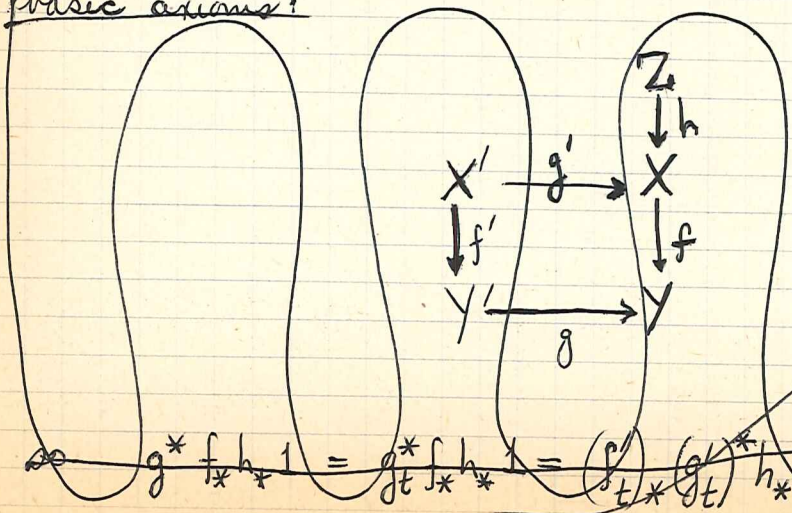 basic axioms!
Z
↓ h
X' g' → X
↓ f' ↓ f
Y' → Y
g
g* f_* h_* 1 = g_t^* f_* h_* 1 = (f'_t)_* (g'_t)^* h_*